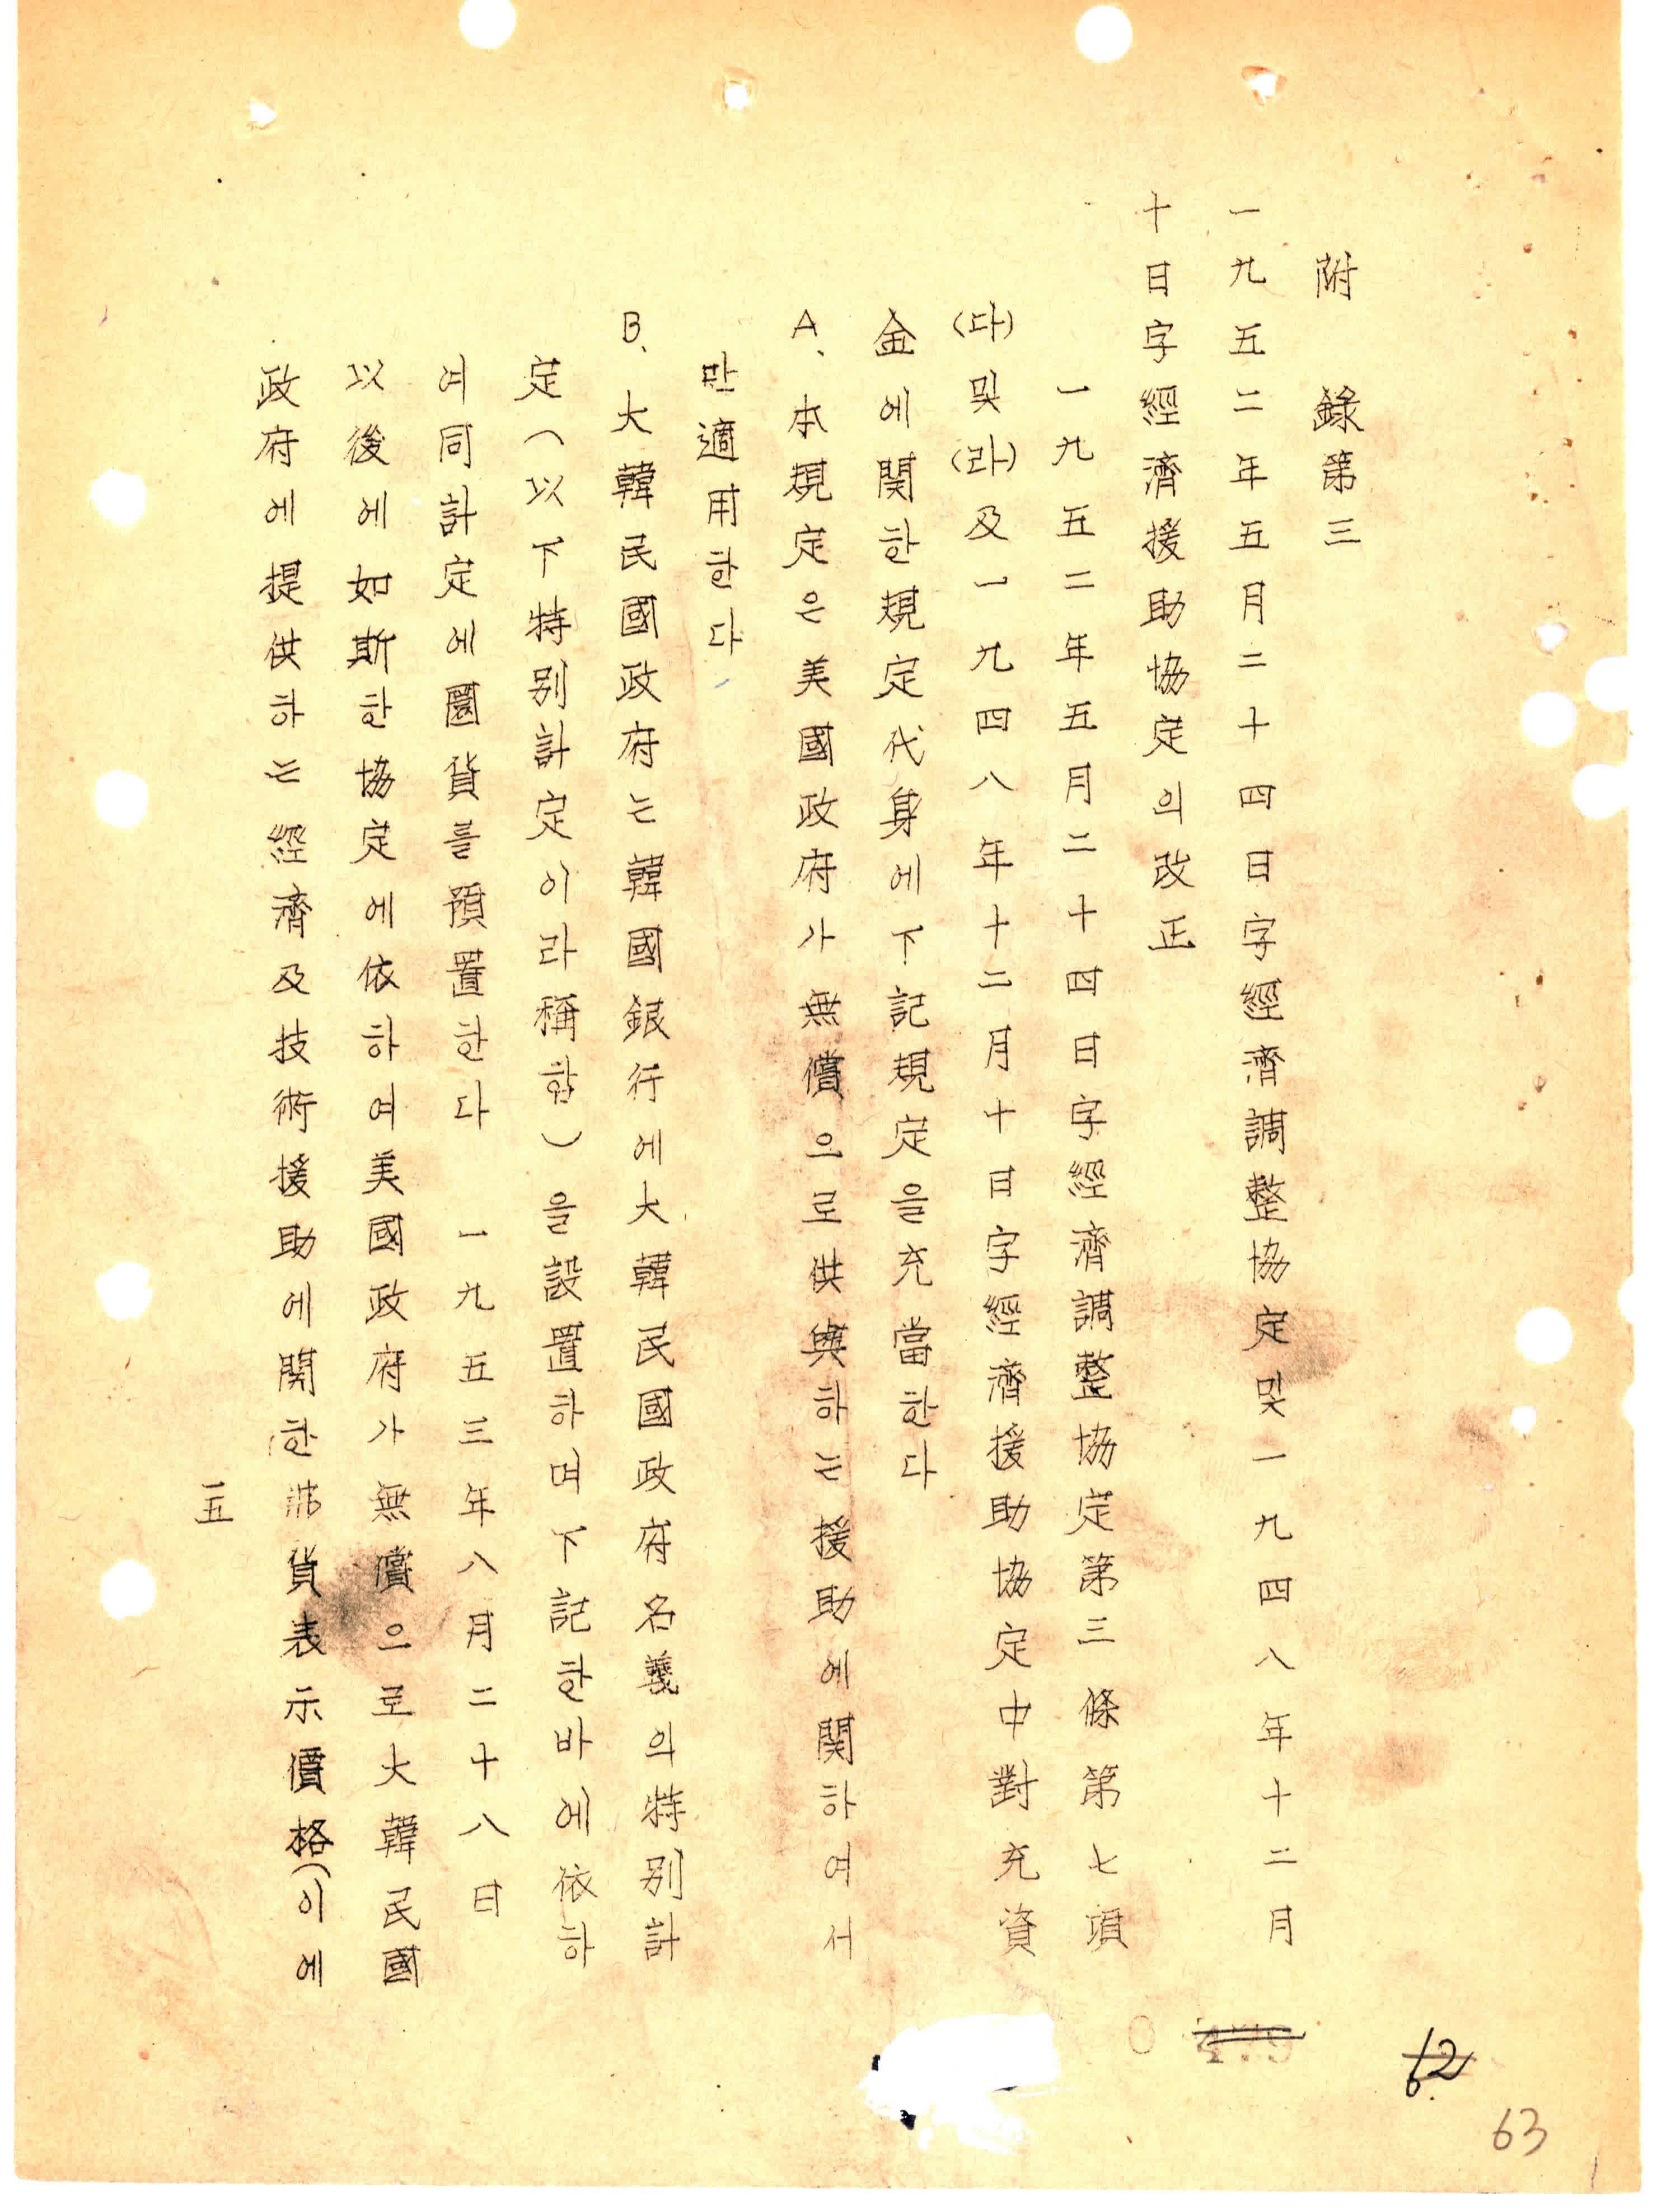 附 錄 第 三
一九五二年五月二十四日字經濟調整協定및一九四八年十二月
十日字經濟援助協定의改正
一九五二年五月二十四日字經濟調整協定第三條第七項
(다)및(라)及一九四八年十二月十日字經濟援助協定中對充資
金에関한規定代身에下記規定을充當한다
A、本規定은美國政府가無償으로供與하는援助에関하여서
만適用한다
B、大韓民國政府는韓國銀行에大韓民國政府名義의特别計
定(以下特别計定이라稱함)을設置하며下記한바에依하
여同計定에圜貨를預置한다 一九五三年八月二十八日
以後에如斯한協定에依하여美國政府가無償으로大韓民國
政府에提供하는經濟及技術援助에関한弗貨表示價格(이에
一五
62
63